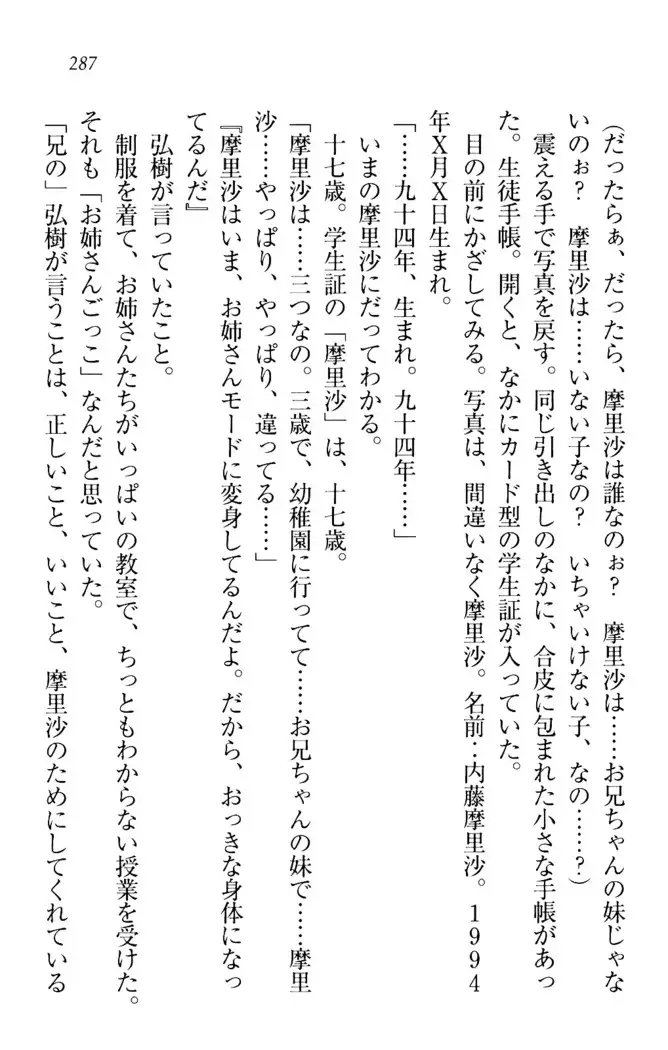 287
(だったらぁ、だったら、摩里沙は誰なのぉ? 摩里沙は……お兄ちゃんの妹じゃな
いのぉ? 摩里沙は……いない子なの? いちゃいけない子、なの……?)
震える手で写真を戻す。同じ引き出しのなかに、合皮に包まれた小さな手帳があっ
た。生徒手帳。開くと、なかにカード型の学生証が入っていた。
目の前にかざしてみる。写真は、間違いなく摩里沙。名前‥内藤摩里沙。1994
年X月X日生まれ。
「……九十四年、生まれ。九十四年……」
いまの摩里沙にだってわかる。
十七歳。学生証の「摩里沙」は、十七歳。
「摩里沙は……三つなの。三歳で、幼稚園に行ってて……お兄ちゃんの妹で……摩里
沙……やっぱり、やっぱり、違ってる……」
『摩里沙はいま、お姉さんモードに変身してるんだよ。だから、おっきな身体になっ
てるんだ』
弘樹が言っていたこと。
制服を着て、お姉さんたちがいっぱいの教室で、ちっともわからない授業を受けた。
それも「お姉さんごっこ」なんだと思っていた。
「兄の」弘樹が言うことは、正しいこと、いいこと、摩里沙のためにしてくれている